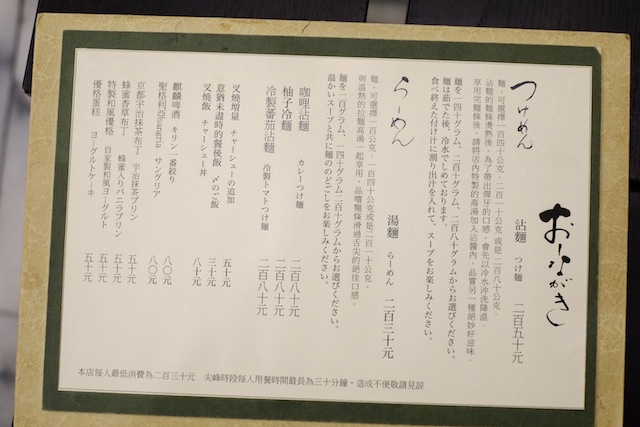 おしながき
つけめん　沾麵　つけ麺　二百五十元
麵，可選擇一百四十公克．二百一十公克 或是二百八十公克．
沾麵的麵條燙熟後，為了帶出彈牙的口感，會先以冷水沖洗降溫．
享用完麵條後，請將店內特製的高湯加入沾醬內，品嘗另一種絕妙好滋味．
麺を一四十グラム、二百十グラム、二百八十グラムからお選びください。
麺は茹でた後、冷水でしめております。
食べ終えた付け汁に割り出汁を入れて、スープをお楽しみください。
らーめん　湯麵　らーめん　二百三十元
麵，可選擇一百公克．一百四十公克或是二百一十公克．
與溫熱的拉麵高湯一起享用，品嚐麵條滑過舌尖的絕佳口感．
麺を一百グラム、一四十グラム二百十グラムからお選びください。
温かいスープと共に麺ののどごしをお楽しみください。
咖哩沾麵　カレーつけ麺　二百八十元
柚子冷麵　二百八十元
冷製蕃茄沾麵　冷製トマトつけ麺　二百八十元
叉燒增量　チャーシューの追加　五十元
意猶未盡時的餐後飯　〆のご飯　三十元
叉燒飯　チャーシュー丼　八十元
麒麟啤酒　キリン一番絞り　八〇元
聖格利亞sangria　サングリア　八〇元
京都宇治抹茶布丁　宇治抹茶プリン　五十元
蜂蜜香草布丁　蜂蜜入りバニラプリン　五十元
特製和風優格　自家製和風ヨーグルト　五十元
優格蛋糕　ヨーグルトケーキ　五十元
本店每人最低消費為二百三十元　尖峰時段每人用餐時間最長為三十分鐘，造成不便敬請見諒